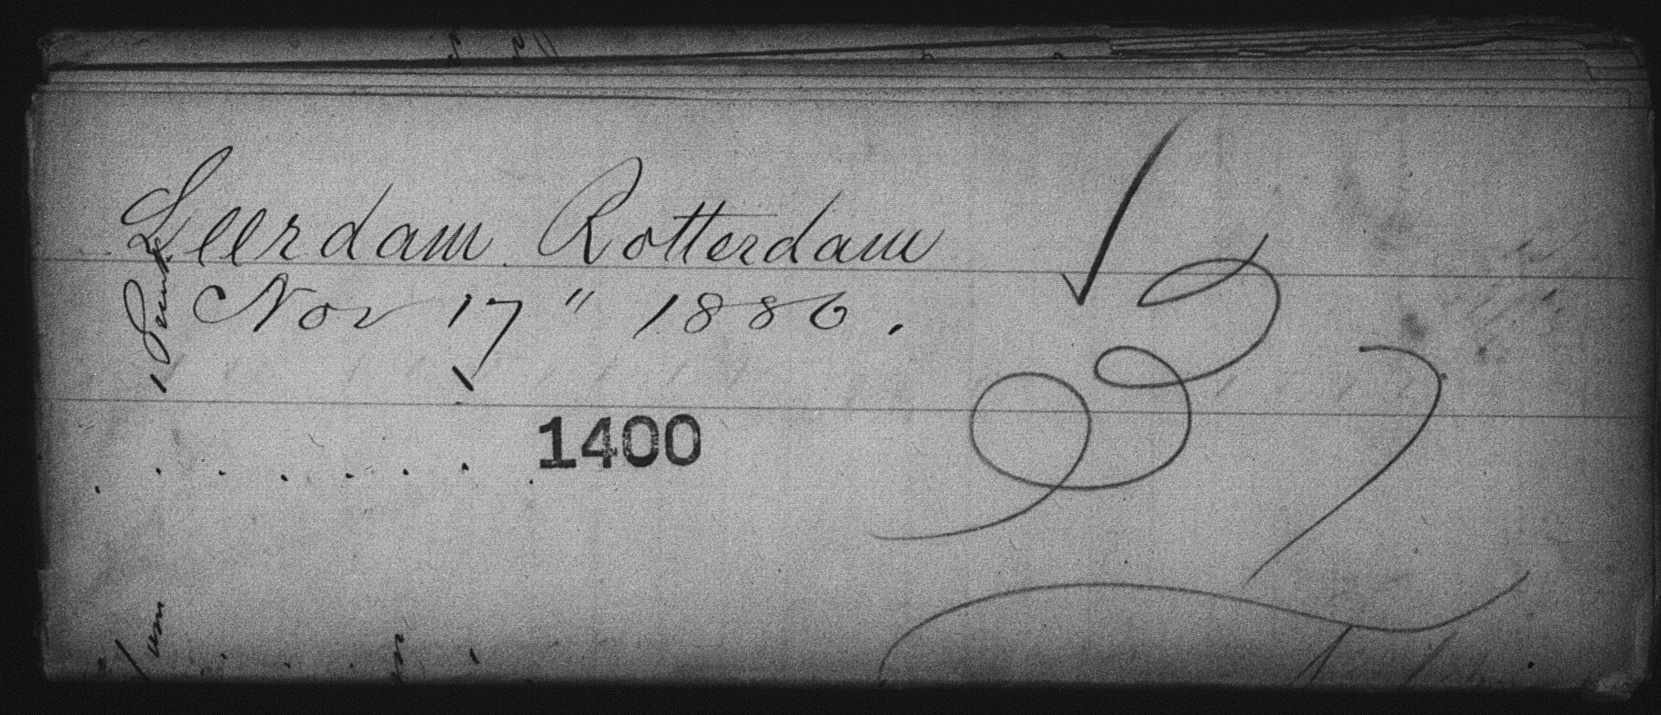 Leerdam Rotterdam
Nov 17" 1886.
1400